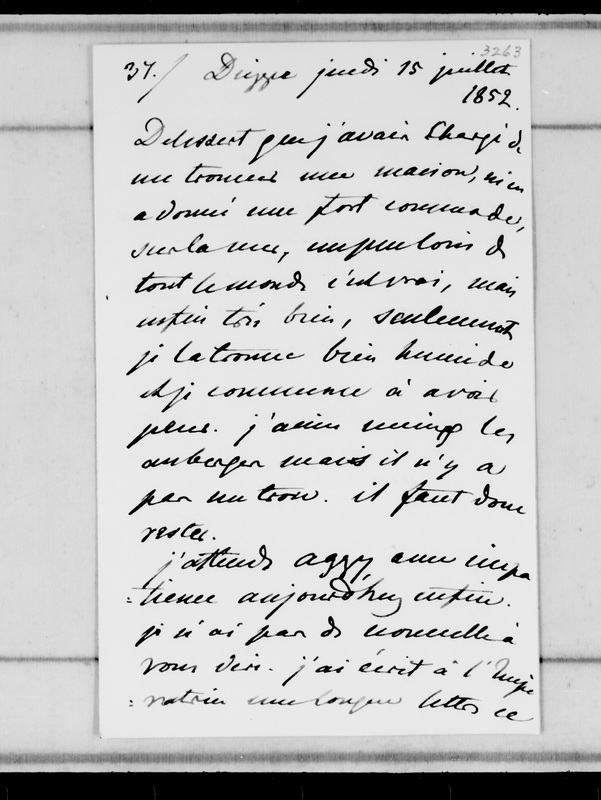 3263
37./ Dieppe jeudi 15 juillet
1852.
Delessert que j'avais chargé de
me trouver une maison, m'en
a donné une fort commode,
sur la mer, un peu loin de
tout le monde c'est vrai, mais
enfin très bien, seulement
je la trouve bien humide
et je commence à avoir
peur. j'aime mieux les
auberges mais il n'y a
pas un trou. il faut donc
rester.
j'attends aggy avec impa
=tience aujourd'huy enfin.
je n'ai pas de nouvelle à
vous dire. j'ai écrit à l'Impé
=ratrice une longue lettre ce